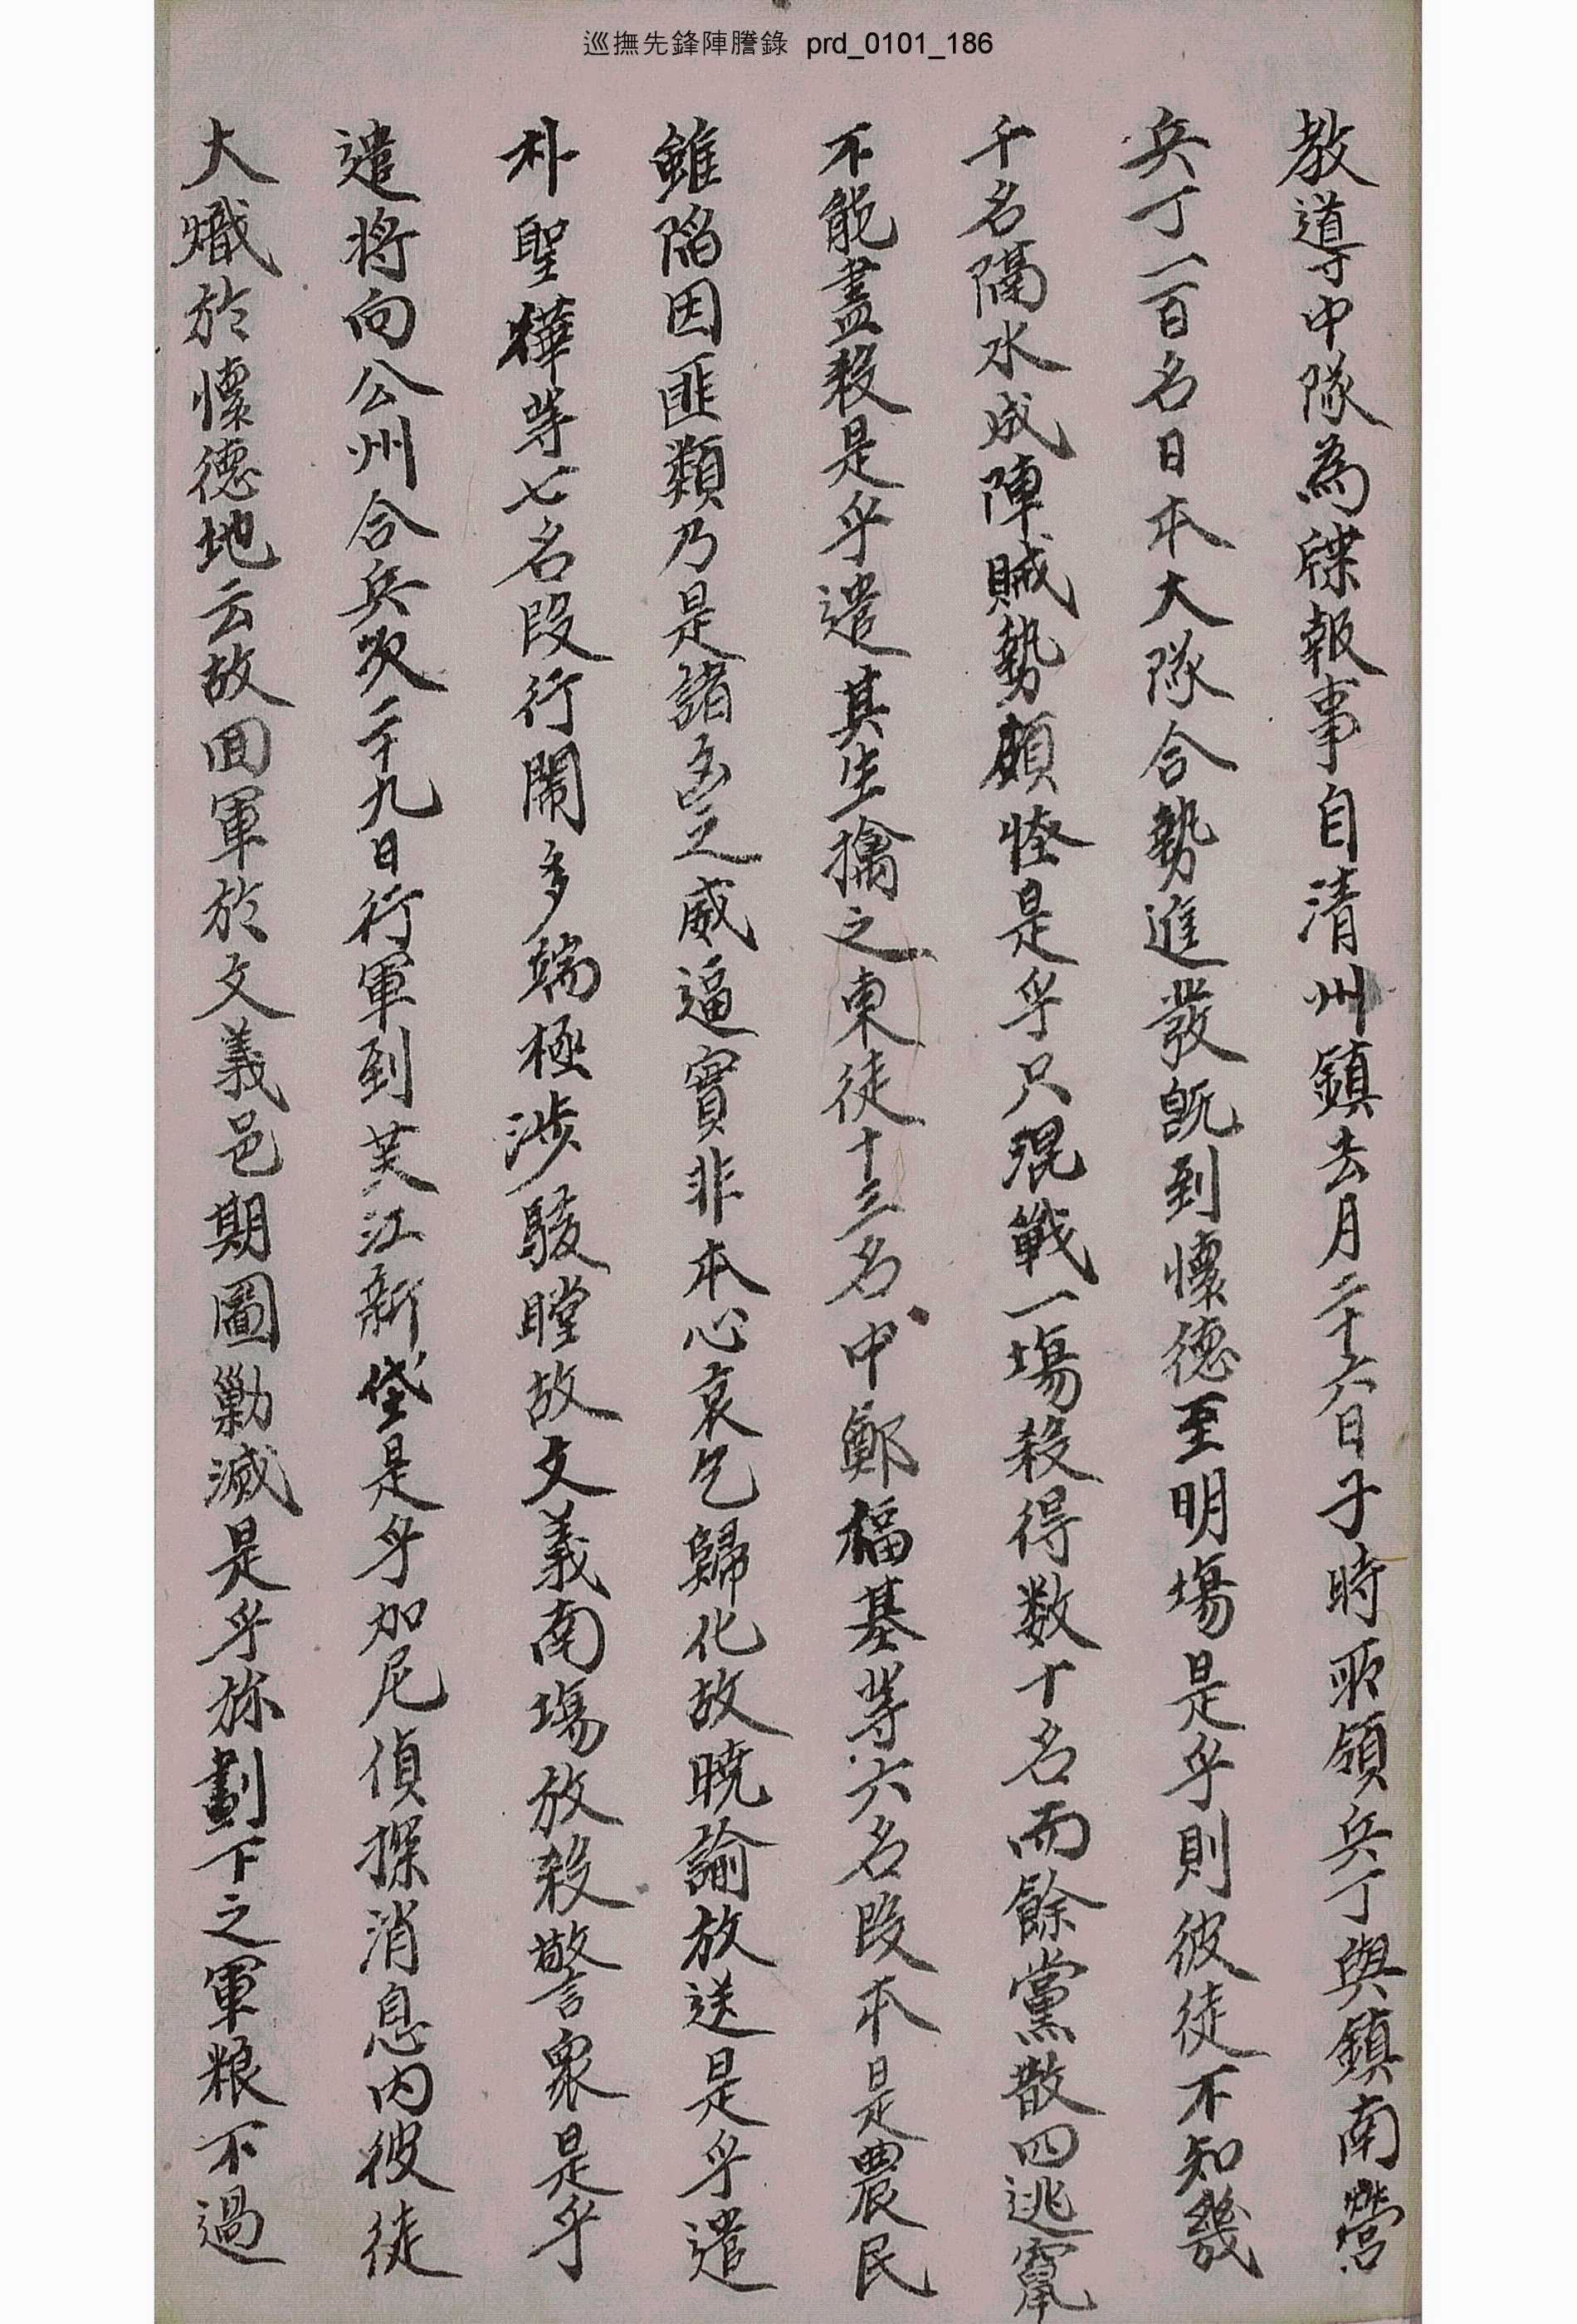 巡撫先鋒陣謄錄 prd_0101_186
教導中隊為牒報事自清州鎮去月二十六日子時所領兵丁與鎮南營
兵丁一百名日本大隊合勢進發旣到懷德至明塲是乎則彼徒不知幾
千名隔水成陣賊勢頗恠是乎只混戰一塲殺得数十名而餘黨散四逃竄
不能盡殺是乎遣其生擒之東徒十三名中鄭福基等六名段本是農民
雖陷因匪類乃是諸包之威逼實非本心哀乞歸化故曉諭放送是乎遣
朴聖燁等七名段行閙多端極涉駭瞠故文義南塲放殺警衆是乎
遣將向公州合兵次二十九日行軍到芙江新垈是乎加尼偵探消息內彼徒
大熾於懷德地云故回軍於文義邑期圖勦滅是乎旀劃下之軍粮不過